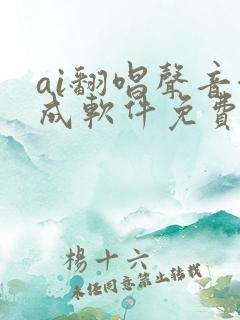 ai翻唱聲音
成軟件免費
楊十六
未經同意禁止轉載